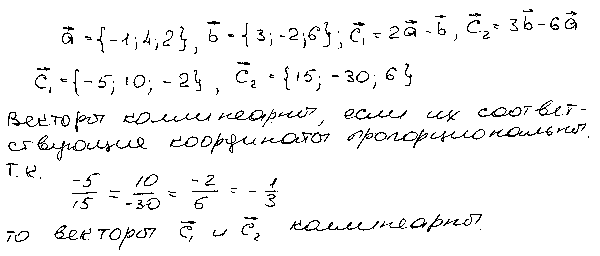 a⃗ = {-1; 4; 2}, b⃗ = {3; -2; 6}; c⃗₁ = 2a⃗ - b⃗, c⃗₂ = 3b⃗ - 6a⃗
c⃗₁ = {-5; 10; -2}, c⃗₂ = {15; -30; 6}
Векторы коллинеарны, если их соответ-
ствующие координаты пропорциональны.
Т.к.
-5/15 = 10/-30 = -2/6 = -1/3
то векторы c⃗₁ и c⃗₂ коллинеарны.